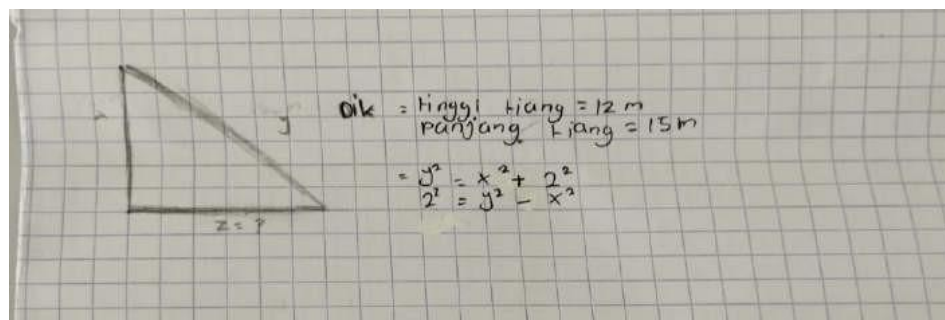 y
z = ?
Dik = tinggi tiang = 12 m
panjang tiang = 15 m
= y² = x² + 2²
2² = y² - x²